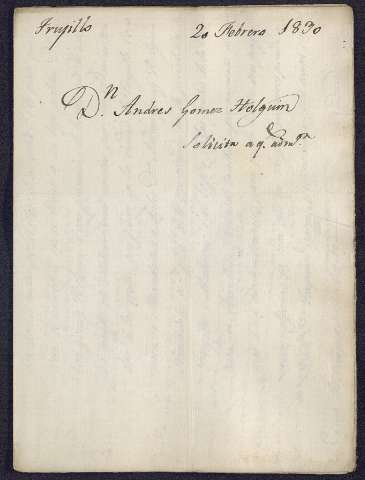 Trujillo 20 Febrero 1830
Dn. Andres Gomez Holguin
Solicita